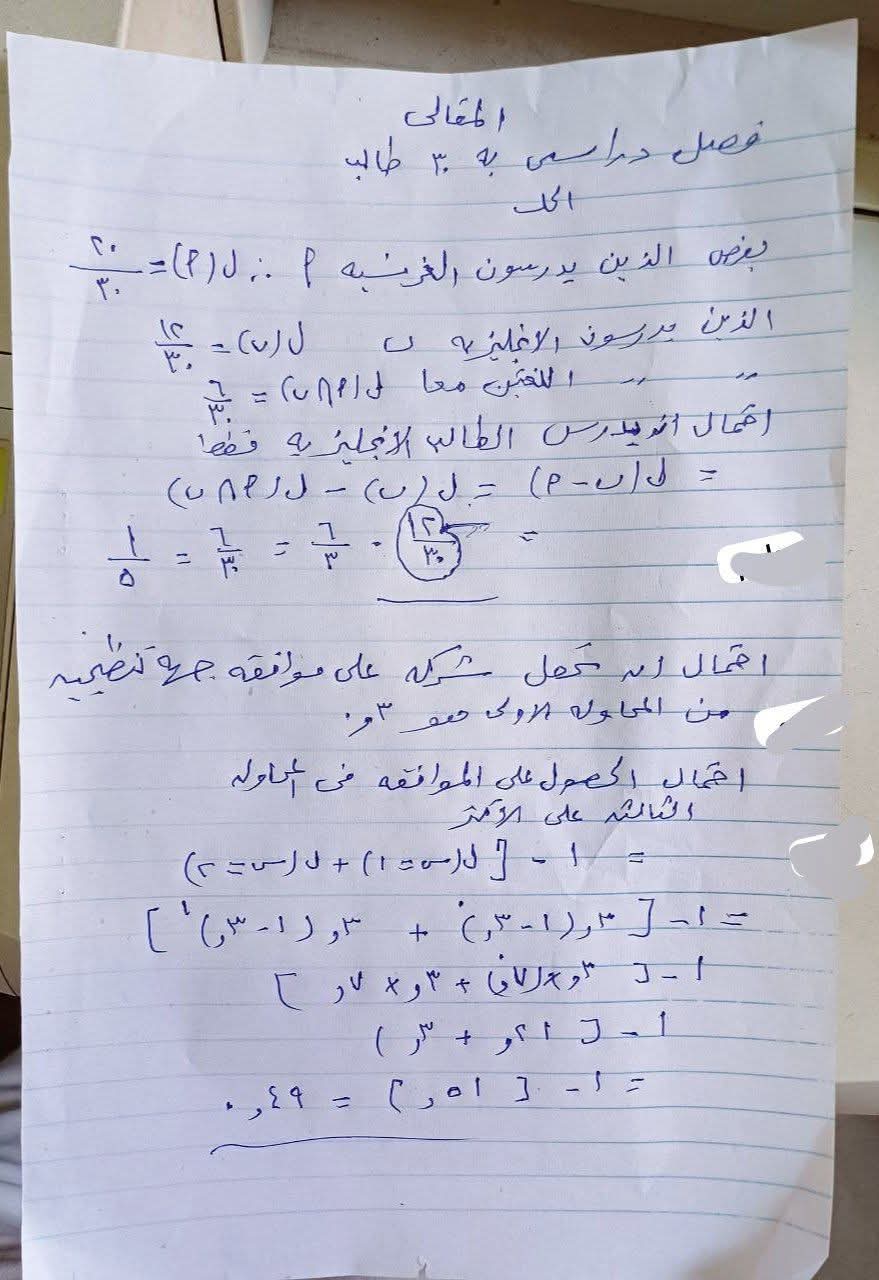 المقالى
فصل دراسى به ٣٠ طالب
الحل
بفرض الذين يدرسون الفرنسيه P ∴ ل(P) = ٢٠/٣٠
الذين يدرسون الانجليزيه ب ل(ب) = ١٢/٣٠
〃 〃 اللغتين معا ل(P∩ب) = ٦/٣٠
احتمال ان يدرس الطالب الانجليزيه فقط
= ل(ب - P) = ل(ب) - ل(P∩ب)
= ١٢/٣٠ - ٦/٣ = ٦/٣٠ = ١/٥
احتمال ان تحصل شركه على موافقه جهه تنظيميه
من المحاوله الاولى هو ٣و٠
احتمال الحصول على الموافقه فى المحاوله
الثالثه على الأكثر
= ١ - [ل(س=١) + ل(س=٢)
= ١ - [٣و(١-٣و)٠ + ٣و(١-٣و)١]
١ - [٣و×(٧و)٠ + ٣و × ٧و]
١ - [٢١و + ٣و)
= ١ - [٥١و] = ٤٩و٠